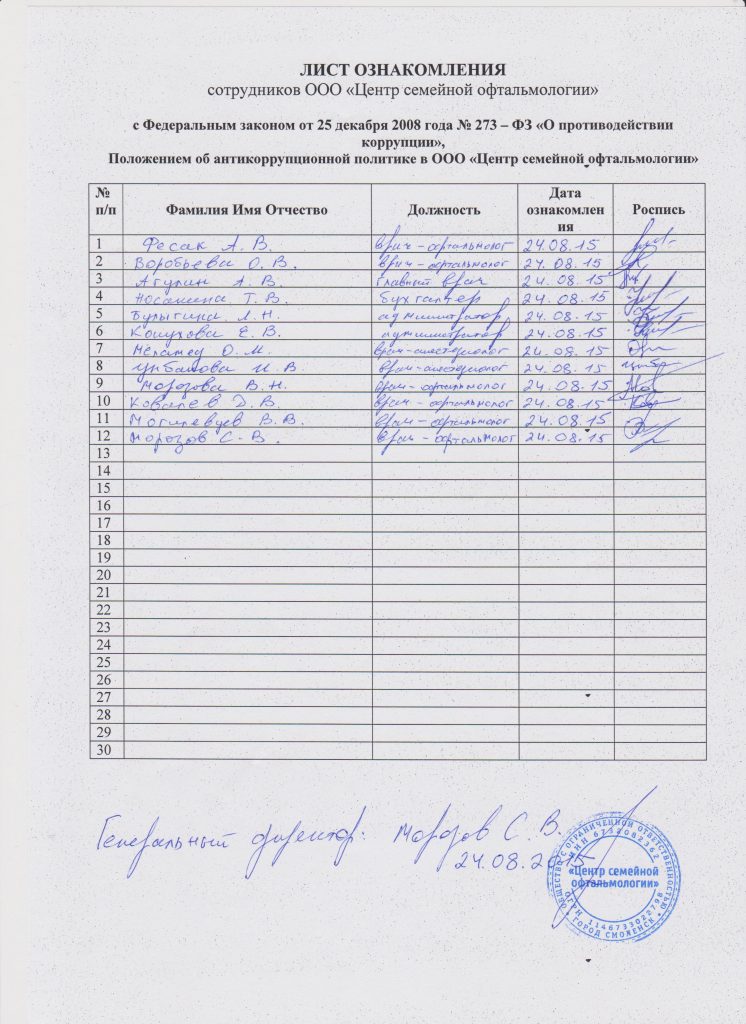 ЛИСТ ОЗНАКОМЛЕНИЯ
сотрудников ООО «Центр семейной офтальмологии»
с Федеральным законом от 25 декабря 2008 года № 273 – ФЗ «О противодействии
коррупции»,
Положением об антикоррупционной политике в ООО «Центр семейной офтальмологии»
№ п/п Фамилия Имя Отчество Должность Дата ознакомлен ия Роспись
1 Фесак А. В. врач-офтальмолог 24.08.15
2 Воробьева О. В. врач-офтальмолог 24.08.15
3 Агулин А. В. главный врач 24.08.15
4 Т. В. бухгалтер 24.08.15
5 Булыгина Л. Н. администратор 24.08.15
6 Кожухова Е. В. администратор 24.08.15
7 Меламед О. М. врач-анестезиолог 24.08.15
8 И. В. врач-анестезиолог 24.08.15
9 Морозова В. Н. врач-офтальмолог 24.08.15
10 Ковалев Д. В. врач-офтальмолог 24.08.15
11 Могилевцев В. В. врач-офтальмолог 24.08.15
12 Морозов С. В. врач-офтальмолог 24.08.15
13
14
15
16
17
18
19
20
21
22
23
24
25
26
27
28
29
30
Генеральный директор: Морозов С. В.
24.08.2015
ОБЩЕСТВО С ОГРАНИЧЕННОЙ ОТВЕТСТВЕННОСТЬЮ
ИНН 6732082362
«Центр семейной
офтальмологии»
ОГРН 1146733022798
ГОРОД СМОЛЕНСК